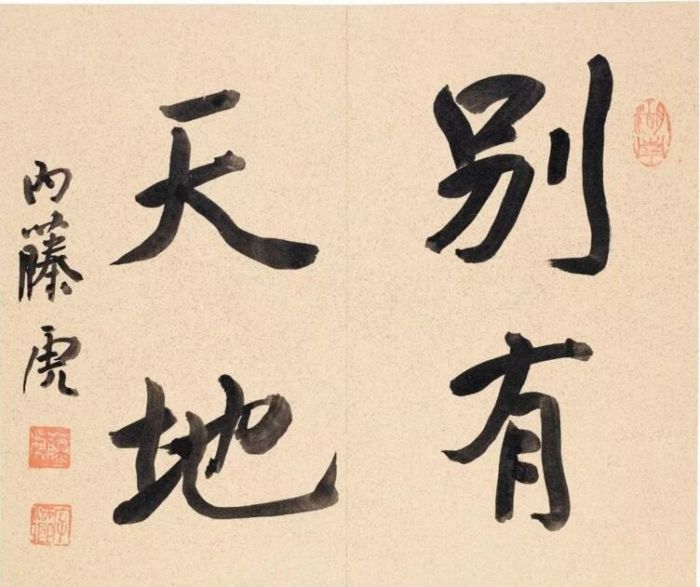 別有
天地
内藤虎